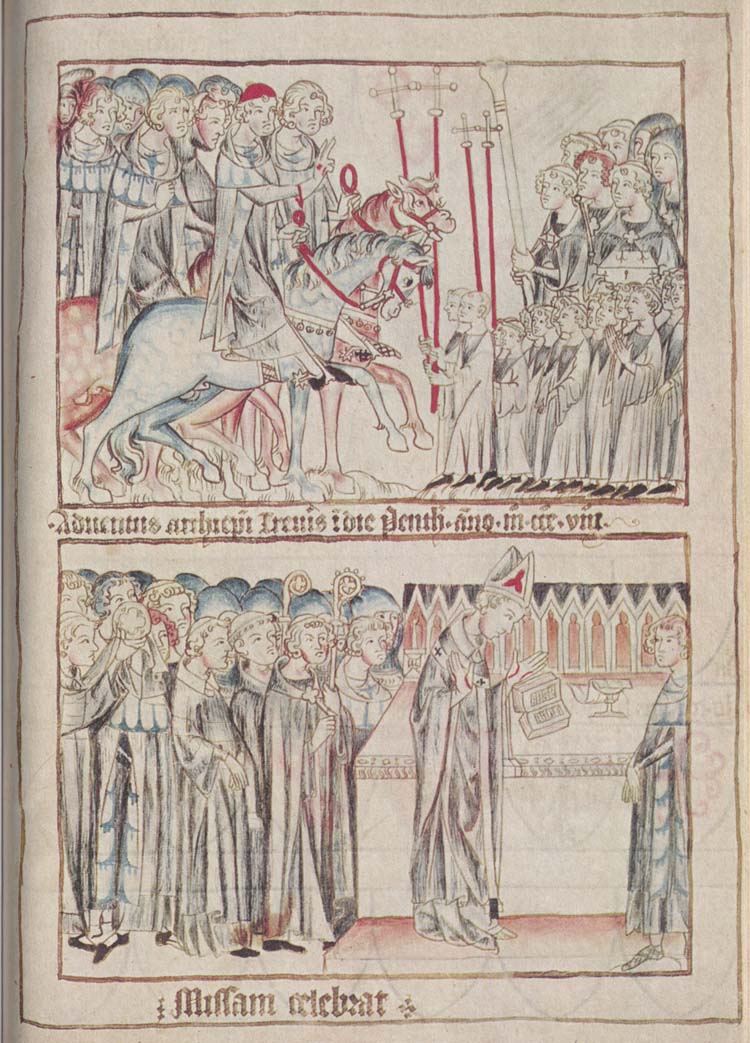 Adventus archiepi Trever̄ i die Penth · āno · m · ccc · viii ·
Missam celebrat